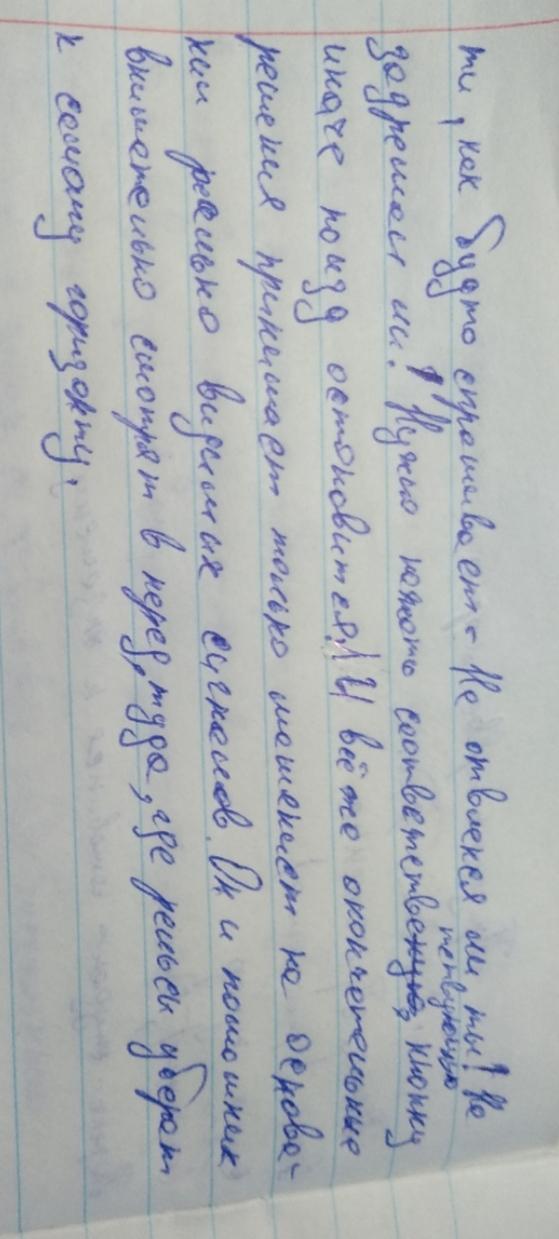 ти, как будто спрашивает - Не отвлекся ли ты? Не
задремал ли? Нужно нажать соответствующую кнопку
иначе поизд остановится! И всё же окончательные
решения принимает только машинист на основа-
нии реально видимых сигналов. Он и помошник
внимательно смотрят в перед, туда, где рельсы убегают
к самому горизонту.